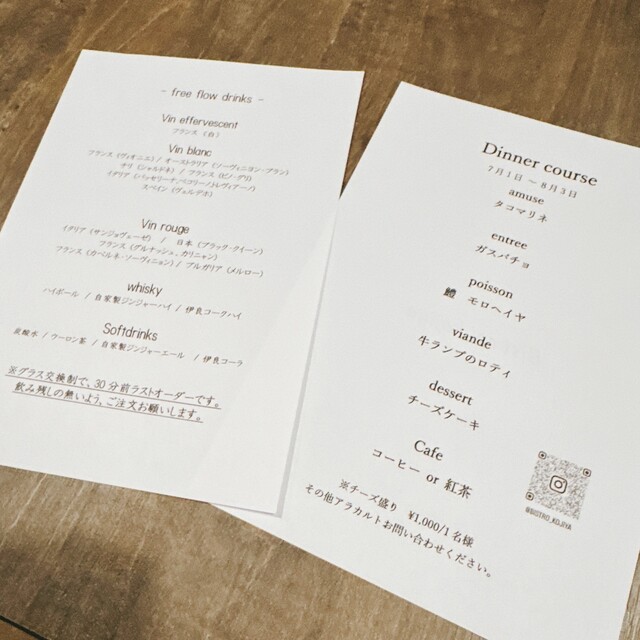 - free flow drinks -
Vin effervescent
フランス (白)
Vin blanc
フランス (ヴィオニエ) / オーストラリア (ソーヴィニヨン・ブラン)
チリ (シャルドネ) / フランス (ピノ・グリ)
イタリア
スペイン (ヴェルデホ)
Vin rouge
イタリア (サンジョヴェーゼ) / 日本 (ブラック・クイーン)
フランス (グルナッシュ、カリニャン)
フランス (カベルネ・ソーヴィニヨン) / ブルガリア (メルロー)
whisky
ハイボール / 自家製ジンジャーハイ / 伊良コークハイ
Softdrinks
炭酸水 / ウーロン茶 / 自家製ジンジャーエール / 伊良コーラ
※グラス交換制で、30分前ラストオーダーです。
飲み残しの無いよう、ご注文お願いします。
Dinner course
7月1日 ～ 8月3日
amuse
タコマリネ
entree
ガスパチョ
poisson
鱧 モロヘイヤ
viande
牛ランプのロティ
dessert
チーズケーキ
Cafe
コーヒー or 紅茶
※チーズ盛り ¥1,000/1名様
その他アラカルトお問い合わせください。
@BISTRO_KOJIYA